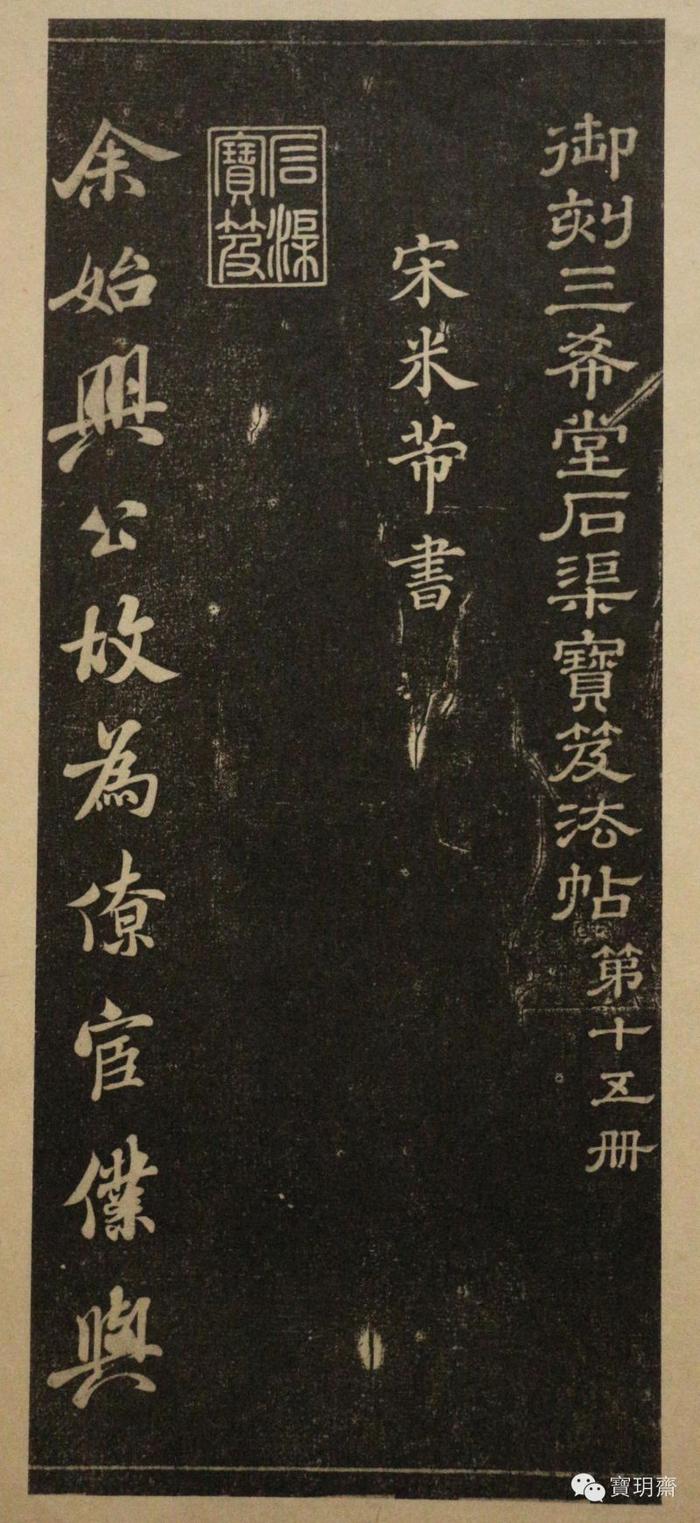 御刻三希堂石渠寶笈法帖 第十五冊
宋米芾書
石渠寶笈
余始興公故為僚宦僕與
寶玥齋